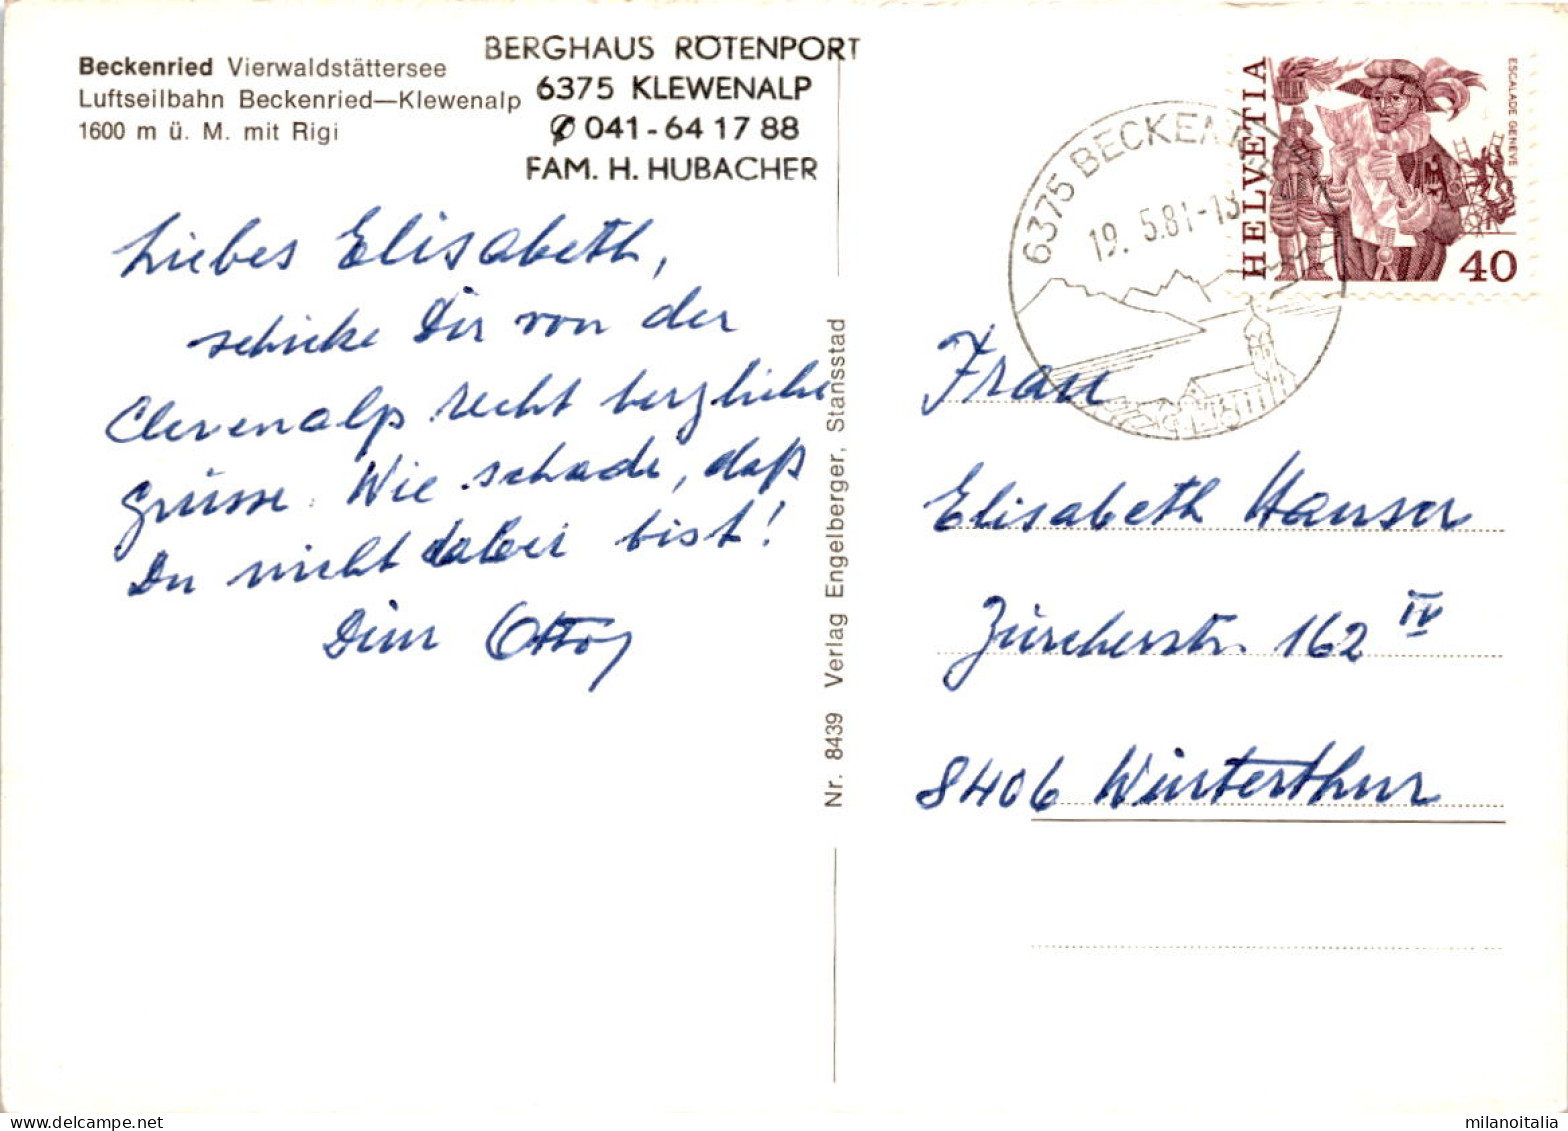 Beckenried Vierwaldstättersee
Luftseilbahn Beckenried—Klewenalp
1600 m ü. M. mit Rigi
BERGHAUS RÖTENPORT
6375 KLEWENALP
041-64 17 88
FAM. H. HUBACHER
Liebes Elisabeth,
schicke Dir von der
Clevenalp recht herzliche
Grüsse. Wie schade, daß
Du nicht dabei bist!
Dein Otto
Nr. 8439 Verlag Engelberger, Stansstad
6375 BECKENRIED
19. 5.81-13
HELVETIA
ESCALADE GENÈVE
40
Frau
Elisabeth Hauser
Zürcherstr. 162 IV
8406 Winterthur
milanoitalia